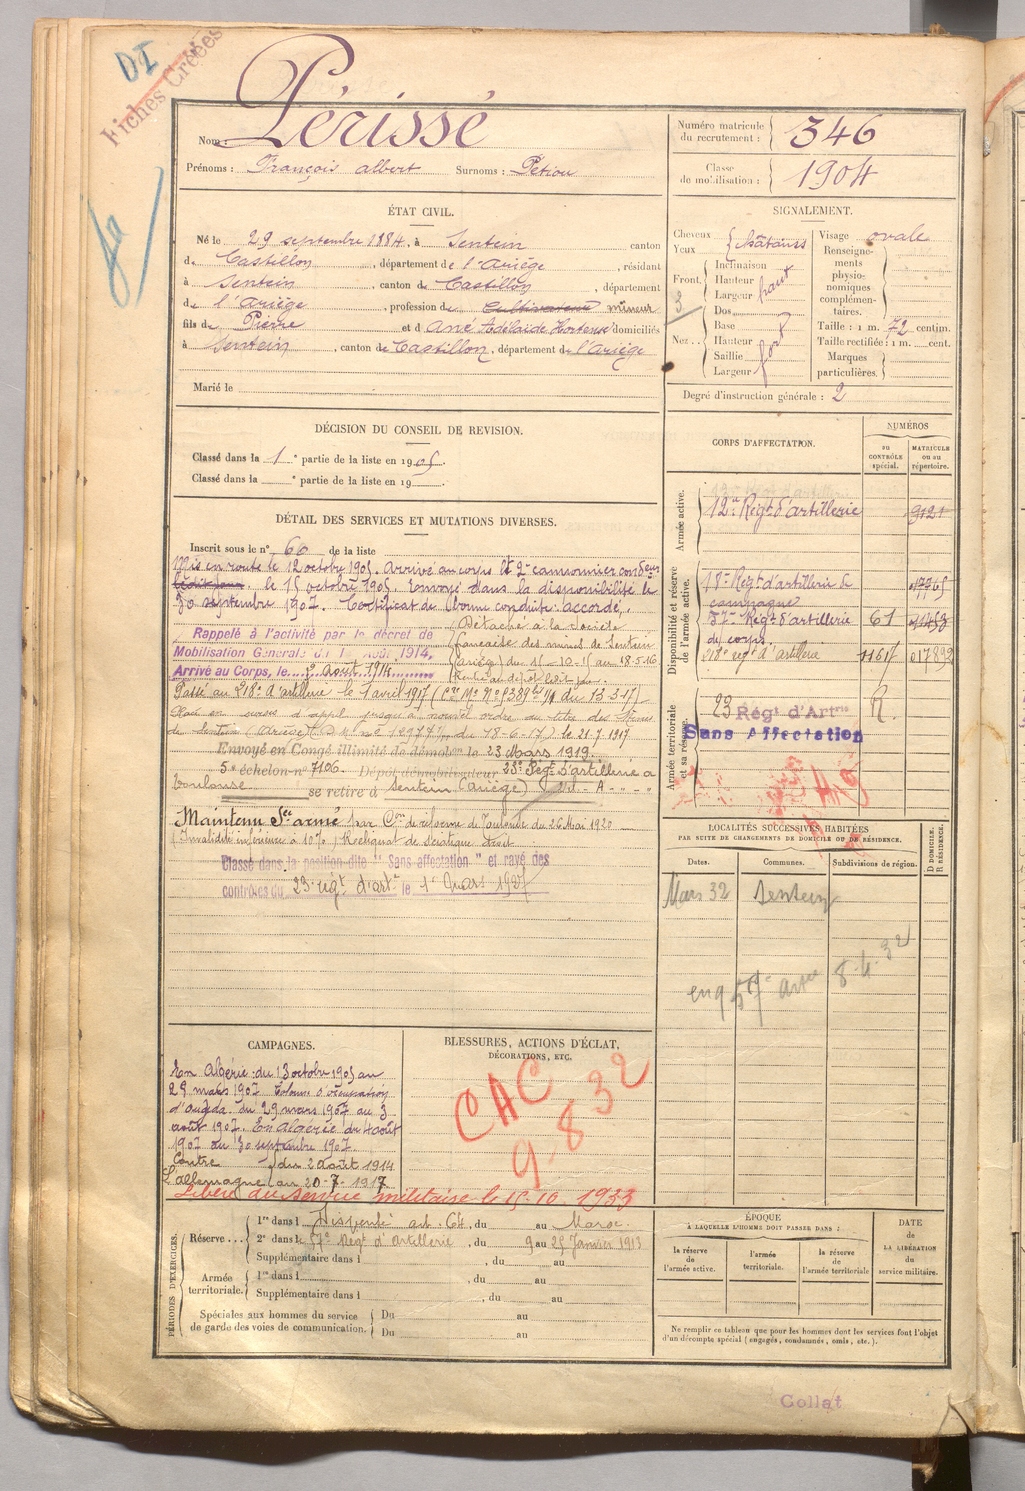 DI
Fiches Créées
Nom : Périssé
Prénoms : François Albert Surnoms : Pétiou
Numéro matricule du recrutement : 346
Classe de mobilisation : 1904
ÉTAT CIVIL.
Né le 29 septembre 1884, à Sentein canton
de Castillon, département de l'Ariège, résidant
à Sentein, canton de Castillon, département
de l'Ariège, profession de Cultivateur mineur
fils de Pierre et d'Ané Adélaïde Hortense domiciliés
à Sentein, canton de Castillon, département de l'Ariège
Marié le
SIGNALEMENT.
Cheveux
Yeux
châtains
Front
Inclinaison
Hauteur
Largeur
haut
3
Nez
Dos
Base
Hauteur
Saillie
Largeur
fort
Visage ovale
Renseignements physionomiques complémentaires.
Taille : 1 m. 72 centim.
Taille rectifiée : 1 m. cent.
Marques particulières.
Degré d'instruction générale : 2
DÉCISION DU CONSEIL DE REVISION.
Classé dans la 1e partie de la liste en 1905.
Classé dans la e partie de la liste en 19
DÉTAIL DES SERVICES ET MUTATIONS DIVERSES.
Inscrit sous le n° 60 de la liste
Mis en route le 12 octobre 1905. Arrivé au corps et 2e canonnier conducteur
le 15 octobre 1905. Envoyé dans la disponibilité le
30 septembre 1907. Certificat de bonne conduite : accordé.
Rappelé à l'activité par le décret de
Mobilisation Générale du 1er Août 1914,
Arrivé au Corps, le août 1914
Détaché à la Société
française des mines de Sentein
(Ariège) du 15-10-15 au 18-5-16
Passé au 218e d'artillerie le 1 avril 1917
Placé en sursis d'appel jusqu'à nouvel ordre au titre des Mines
de Sentein (Ariège) du 18-6-17) le 21.7.1917
Envoyé en Congé illimité de démobon le 23 Mars 1919.
5e échelon n° 7106. Dépôt démobilisateur 23e Régt d'artillerie à
Toulouse se retire à Sentein (Ariège)
Maintenu Sce armé par Con de réforme de Toulouse du 26 Mai 1920
Invalidité inférieure à 10% Reliquat de sciatique
Classé dans la position dite "Sans affectation" et rayé des
contrôles du 23e régt d'artie le 1er Mars 1927
CORPS D'AFFECTATION.
NUMÉROS
au CONTRÔLE spécial.
MATRICULE ou au répertoire.
Armée active.
12e Régt d'artillerie 9121
Disponibilité et réserve de l'armée active.
18e Régt d'artillerie de
campagne
57e Régt d'artillerie 61
de corps.
218e régt d'artillerie
Armée territoriale et sa réserve.
23 Régt d'Artrie
Sans Affectation
LOCALITÉS SUCCESSIVES HABITÉES
PAR SUITE DE CHANGEMENTS DE DOMICILE OU DE RÉSIDENCE.
Dates. Communes. Subdivisions de région.
D DOMICILE. R RÉSIDENCE.
Mars 32 Sentein
8-4-32
CAMPAGNES.
En Algérie : du 13 octobre 1905 au
29 mars 1907
d'Oudjda du 29 mars 1907 au 3
août 1907. En Algérie du 4 août
1907 au 30 septembre 1907.
Contre du 2 août 1914
L'allemagne au 20-7-1917
BLESSURES, ACTIONS D'ÉCLAT,
DÉCORATIONS, ETC.
CAC
9.8 32
Libéré du service militaire le 15.10.1933
PÉRIODES D'EXERCICES.
Réserve
1re dans l Dispensé art. 64, du au Maroc.
2e dans le 57e Régt d'Artillerie, du 9 au 25 Janvier 1913
Supplémentaire dans l , du au
Armée territoriale.
1re dans l , du au
Supplémentaire dans l , du au
Spéciales aux hommes du service
de garde des voies de communication.
Du au
Du au
ÉPOQUE
À LAQUELLE L'HOMME DOIT PASSER DANS :
la réserve de l'armée active.
l'armée territoriale.
la réserve de l'armée territoriale
DATE de LA LIBÉRATION du service militaire.
Ne remplir ce tableau que pour les hommes dont les services font l'objet
d'un décompte spécial (engagés, condamnés, omis, etc.).
Collat